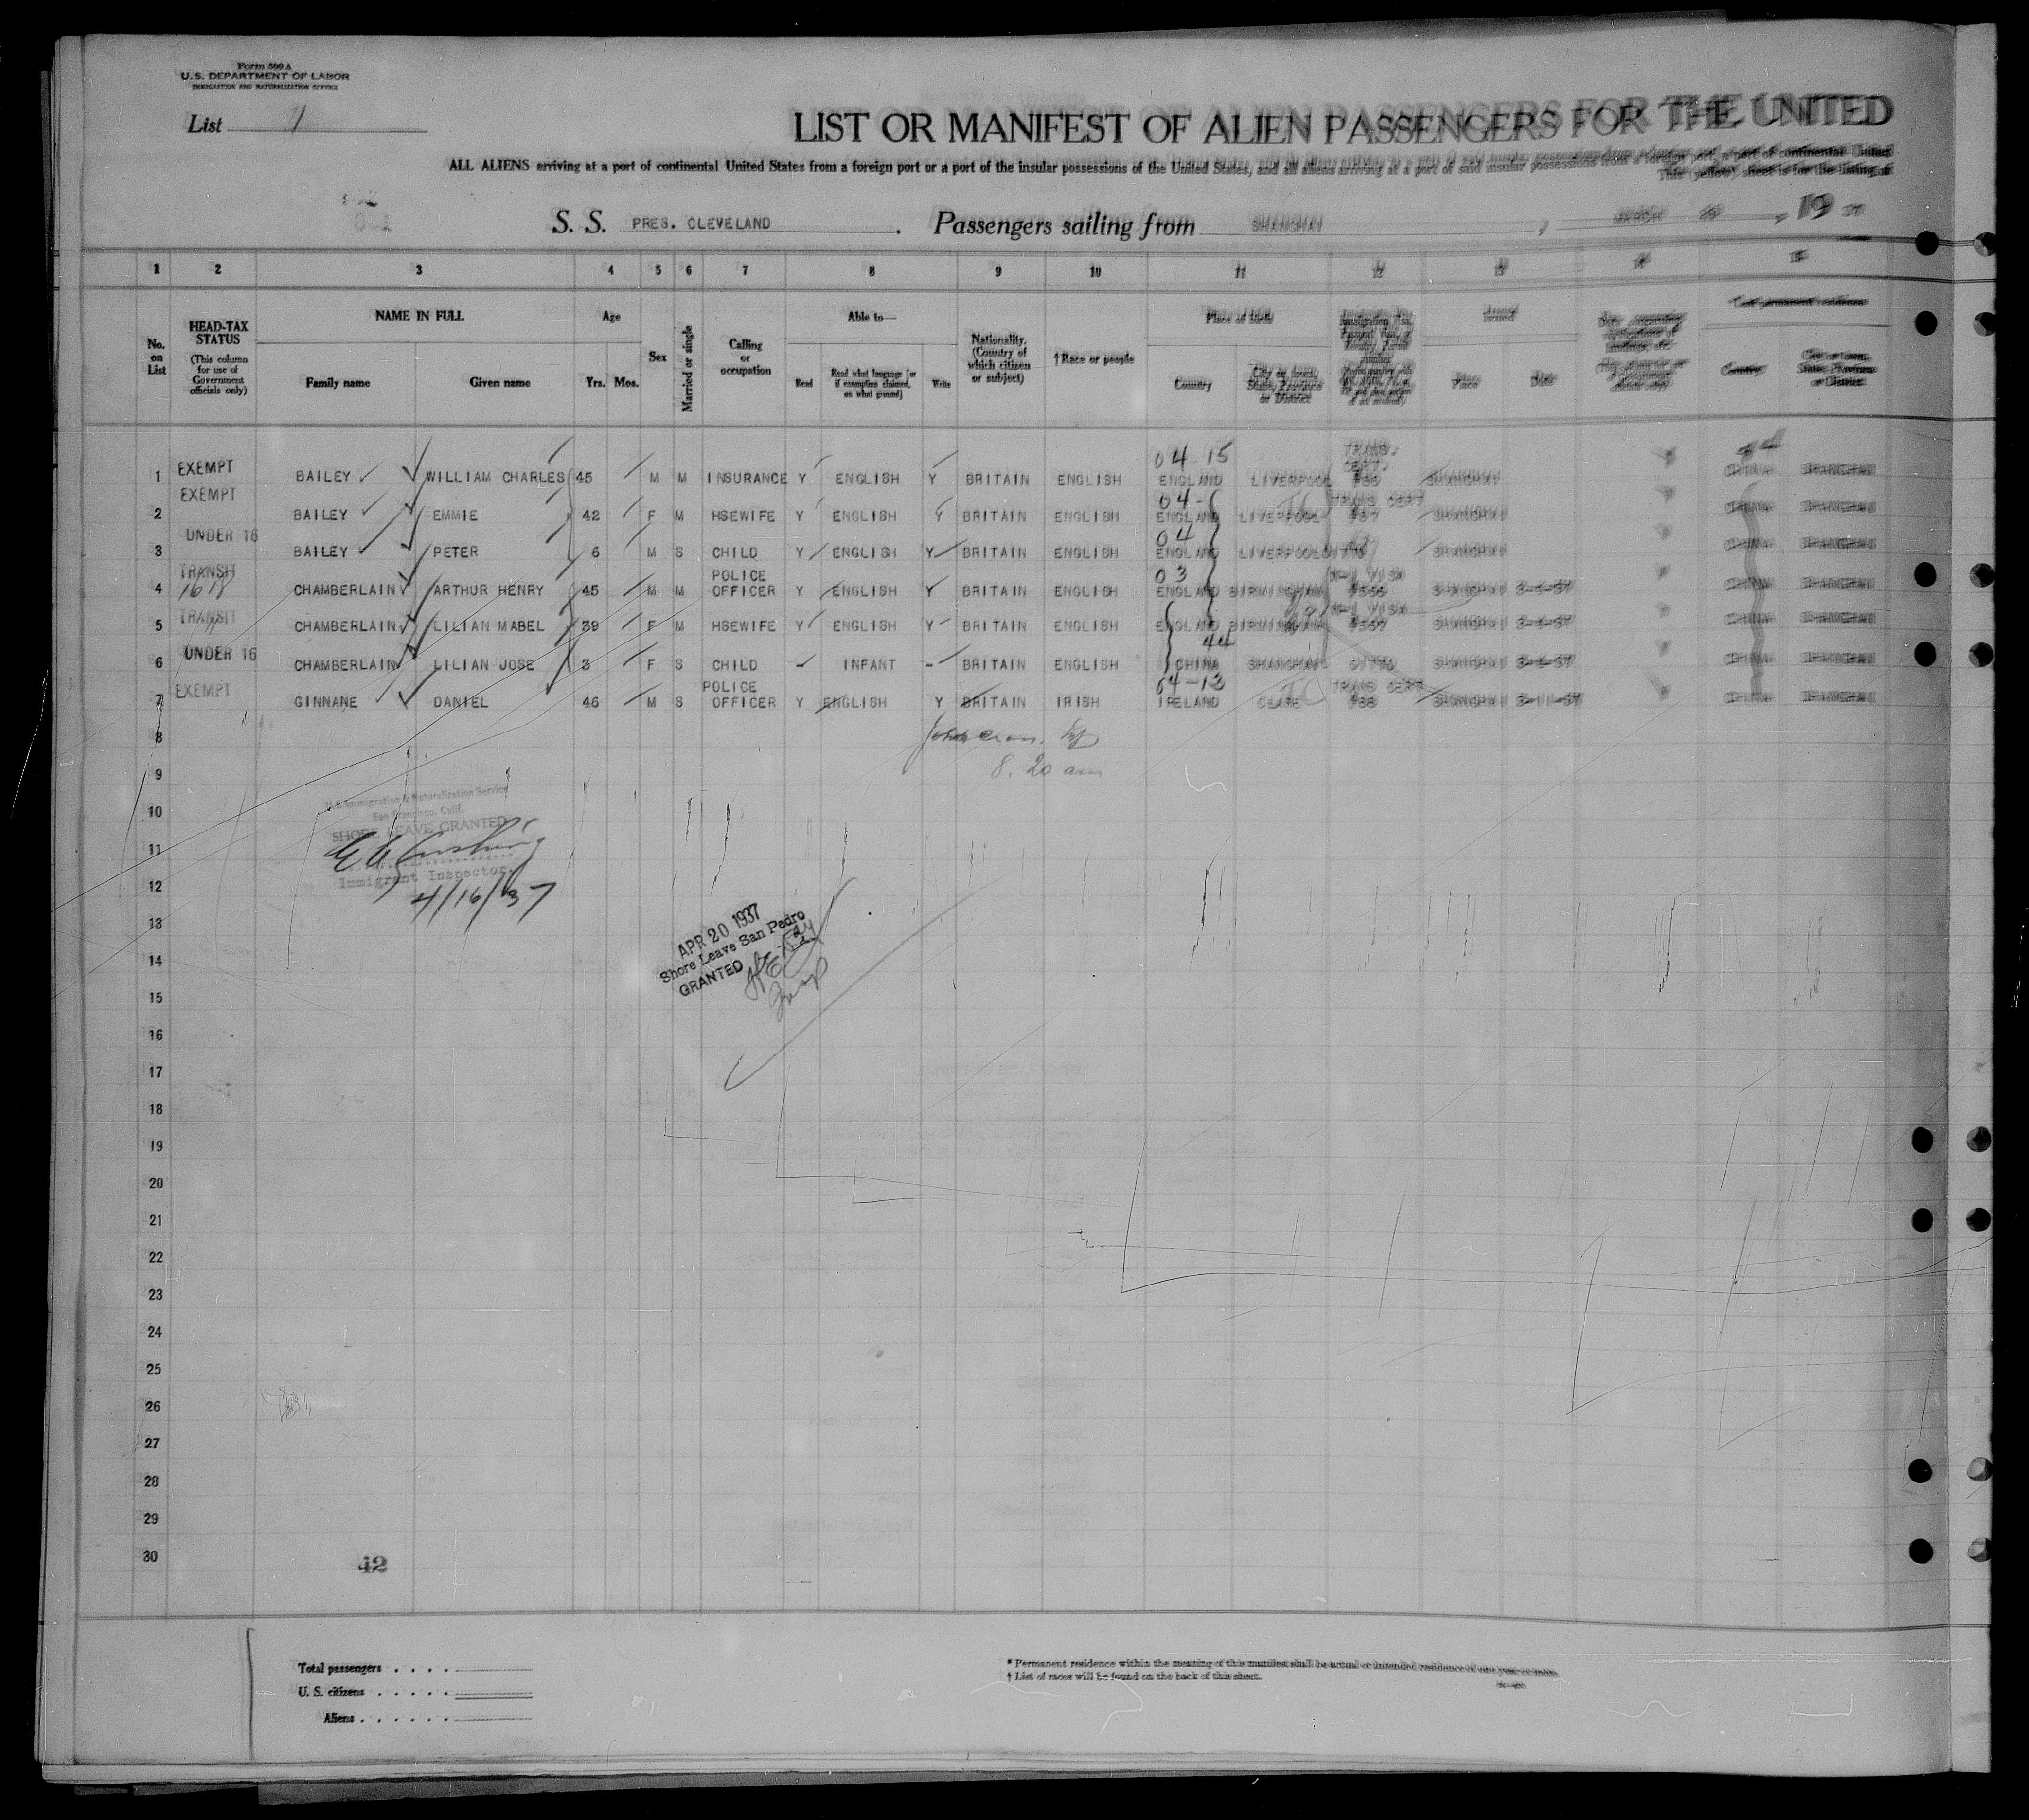 Form 500 A
U.S. DEPARTMENT OF LABOR
IMMIGRATION AND NATURALIZATION SERVICE
List 1
LIST OR MANIFEST OF ALIEN PASSENGERS FOR THE UNITED
ALL ALIENS arriving at a port of continental United States from a foreign port or a part of the insular possessions of the United States, and all aliens arriving at a port of said insular possessions from a foreign port, a part of continental United
This (yellow) sheet is for the listing of
S. S. PRES. CLEVELAND. Passengers sailing from SHANGHAI, MARCH 19 37
1 2 3 4 5 6 7 8 9 10 11 12 13 14 15
No. on List
HEAD-TAX STATUS
(This column for use of Government officials only)
NAME IN FULL
Family name
Given name
Age
Yrs. Mos.
Sex
Married or single
Calling or occupation
Able to—
Read
Read what language [or if exemption claimed, on what ground]
Write
Nationality. (Country of which citizen or subject)
† Race or people
Place of birth
Country
City or town, State, Province or District
Issued
Place
Date
Last permanent residence
Country
City or town, State, Province or District
04-15 TRANS. CERT.
1 EXEMPT BAILEY WILLIAM CHARLES 45 M M INSURANCE Y ENGLISH Y BRITAIN ENGLISH ENGLAND LIVERPOOL SHANGHAI CHINA SHANGHAI
2 EXEMPT BAILEY EMMIE 42 F M HSEWIFE Y ENGLISH Y BRITAIN ENGLISH 04- ENGLAND LIVERPOOL TRANS CERT SHANGHAI CHINA SHANGHAI
3 UNDER 16 BAILEY PETER 6 M S CHILD Y ENGLISH Y BRITAIN ENGLISH 04 ENGLAND LIVERPOOL DITTO SHANGHAI CHINA SHANGHAI
4 TRANSIT 1618 CHAMBERLAIN ARTHUR HENRY 45 M M POLICE OFFICER Y ENGLISH Y BRITAIN ENGLISH 03 ENGLAND BIRMINGHAM SHANGHAI CHINA SHANGHAI
5 TRANSIT " CHAMBERLAIN LILIAN MABEL 39 F M HSEWIFE Y ENGLISH Y BRITAIN ENGLISH ENGLAND BIRMINGHAM SHANGHAI CHINA SHANGHAI
6 UNDER 16 CHAMBERLAIN LILIAN JOSE 3 F S CHILD - INFANT - BRITAIN ENGLISH 44 CHINA SHANGHAI DITTO SHANGHAI CHINA SHANGHAI
7 EXEMPT GINNANE DANIEL 46 M S POLICE OFFICER Y ENGLISH Y BRITAIN IRISH 04-13 IRELAND CLARE TRANS CERT SHANGHAI 3-11-37 CHINA SHANGHAI
8
9 8.20 am
10
11
12
13
14
15
16
17
18
19
20
21
22
23
24
25
26
27
28
29
30
U.S. Immigration & Naturalization Service
San Francisco, Calif.
SHORE LEAVE GRANTED
Immigrant Inspector
4/16/37
APR 20 1937
Shore Leave San Pedro
GRANTED
42
Total passengers . . . .
U. S. citizens . . . . .
Aliens . . . . . .
* Permanent residence within the meaning of this manifest shall be actual or intended residence of one year or more.
† List of races will be found on the back of this sheet.